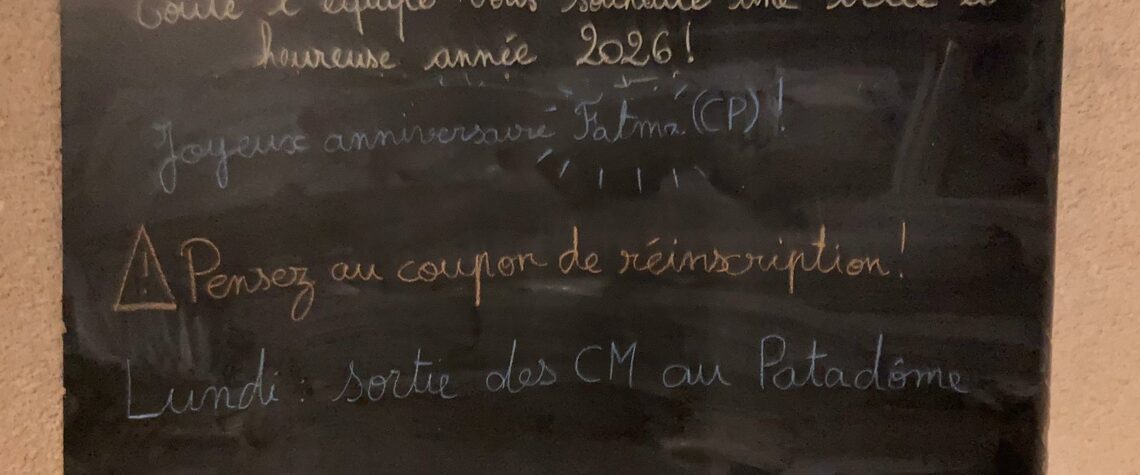 Toute l'équipe vous souhaite une
heureuse année 2026!
Joyeux anniversaire Fatma (CP)!
! Pensez au coupon de réinscription!
Lundi: sortie des CM au Patadôme